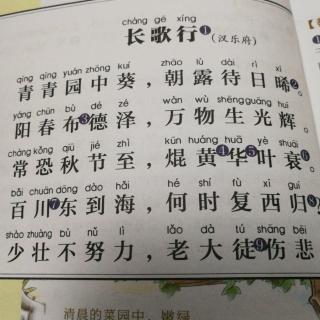 cháng gē xíng
长歌行❶(汉乐府)
qīng qīng yuán zhōng kuí zhāo lù dài rì xī
青青园中葵,朝露待日晞❷。
yáng chūn bù dé zé wàn wù shēng guāng huī
阳春布❸德泽,万物生光辉。
cháng kǒng qiū jié zhì kūn huáng huā yè shuāi
常恐秋节至,焜黄❹华❺叶衰❻。
bǎi chuān dōng dào hǎi hé shí fù xī guī
百川❼东到海,何时复西归❽
shào zhuàng bù nǔ lì lǎo dà tú shāng bēi
少壮不努力,老大徒❾伤悲
清晨的菜园中,嫩绿